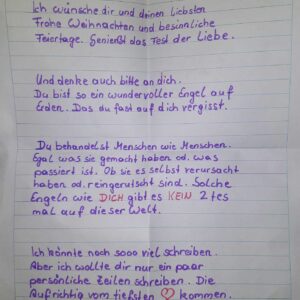 Ich wünsche dir und deinen Liebsten
Frohe Weihnachten und besinnliche
Feiertage. Genießt das Fest der Liebe.
Und denke auch bitte an dich.
Du bist so ein wundervoller Engel auf
Erden. Das du fast auf dich vergisst.
Du behandelst Menschen wie Menschen.
Egal was sie gemacht haben od. was
passiert ist. Ob sie es selbst verursacht
haben od. reingerutscht sind. Solche
Engeln wie DICH gibt es KEIN 2tes
mal auf dieser Welt.
Ich könnte noch sooo viel schreiben.
Aber ich wollte dir nur ein paar
persönliche Zeilen schreiben. Die
Aufrichtig vom tiefsten ♡ kommen.